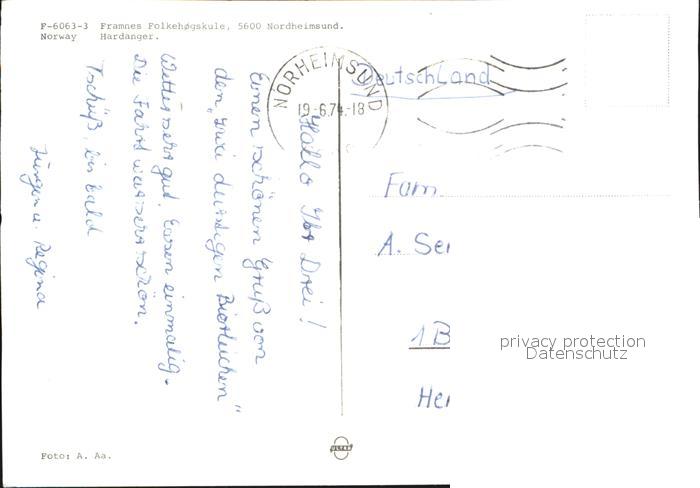 F-6063-3 Framnes Folkehøgskule, 5600 Nordheimsund.
Norway Hardanger.
NORHEIMSUND
19-6.74-18
Deutschland
Hallo Ihr Drei!
Einen schönen Gruß von
den "zwei durstigen Bierleichen"
Wetter sehr gut, Essen einmalig.
Die Fahrt war sehr schön.
Tschüß, bis bald
Jürgen u. Regina
Fam
A. Sei
1 B
Hei
privacy protection
Datenschutz
Foto: A. Aa.